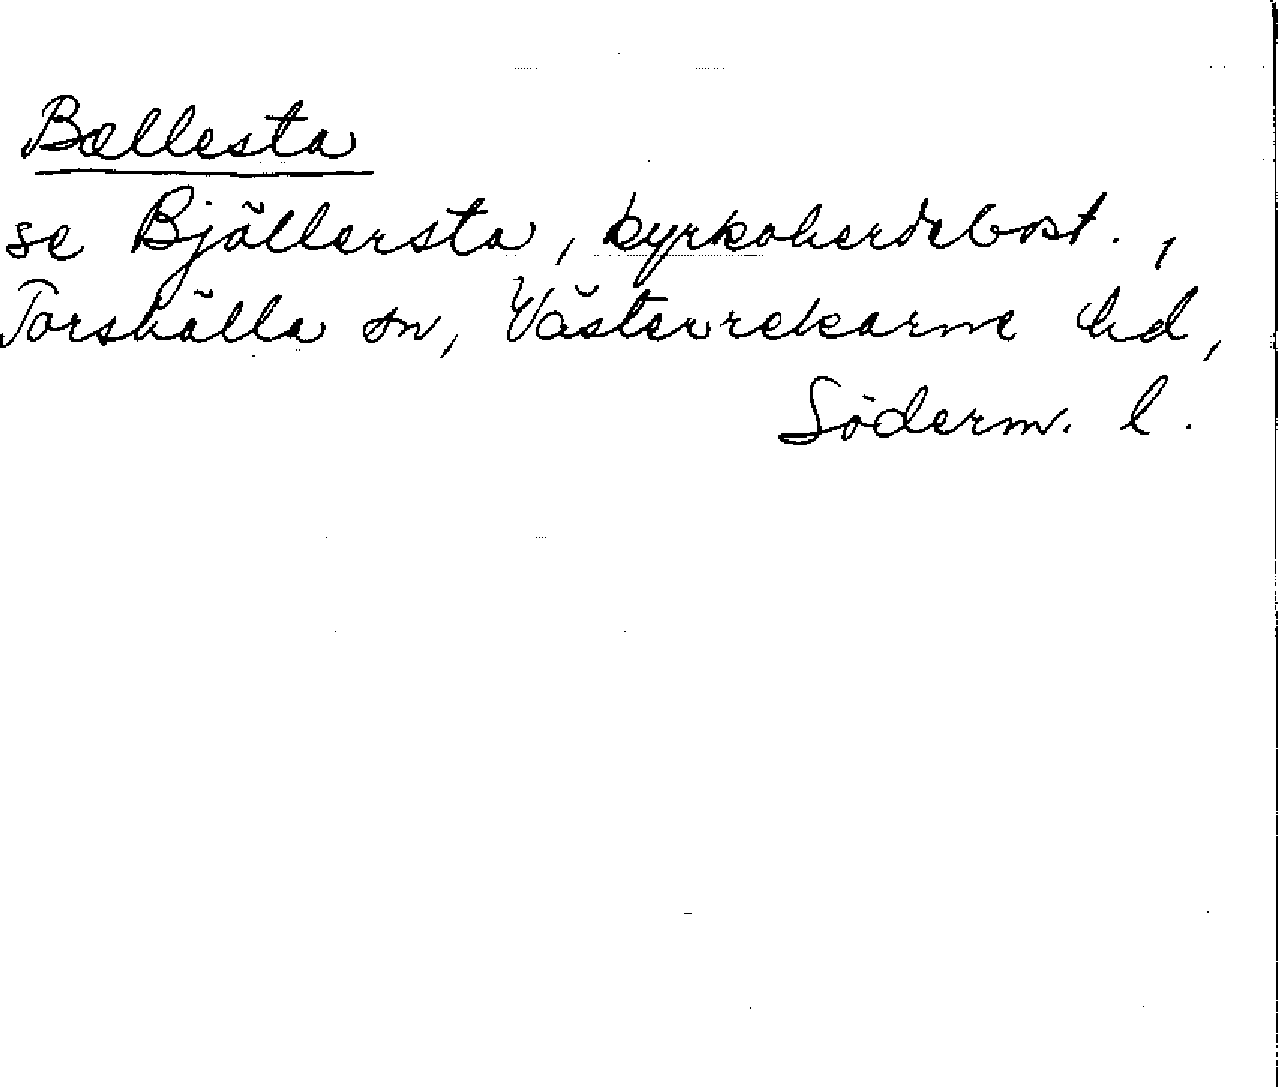 Bællesta
se Bjällersta, kyrkoherdebost.,
Torshälla sn, Västerrekarne hd,
Söderm. l.